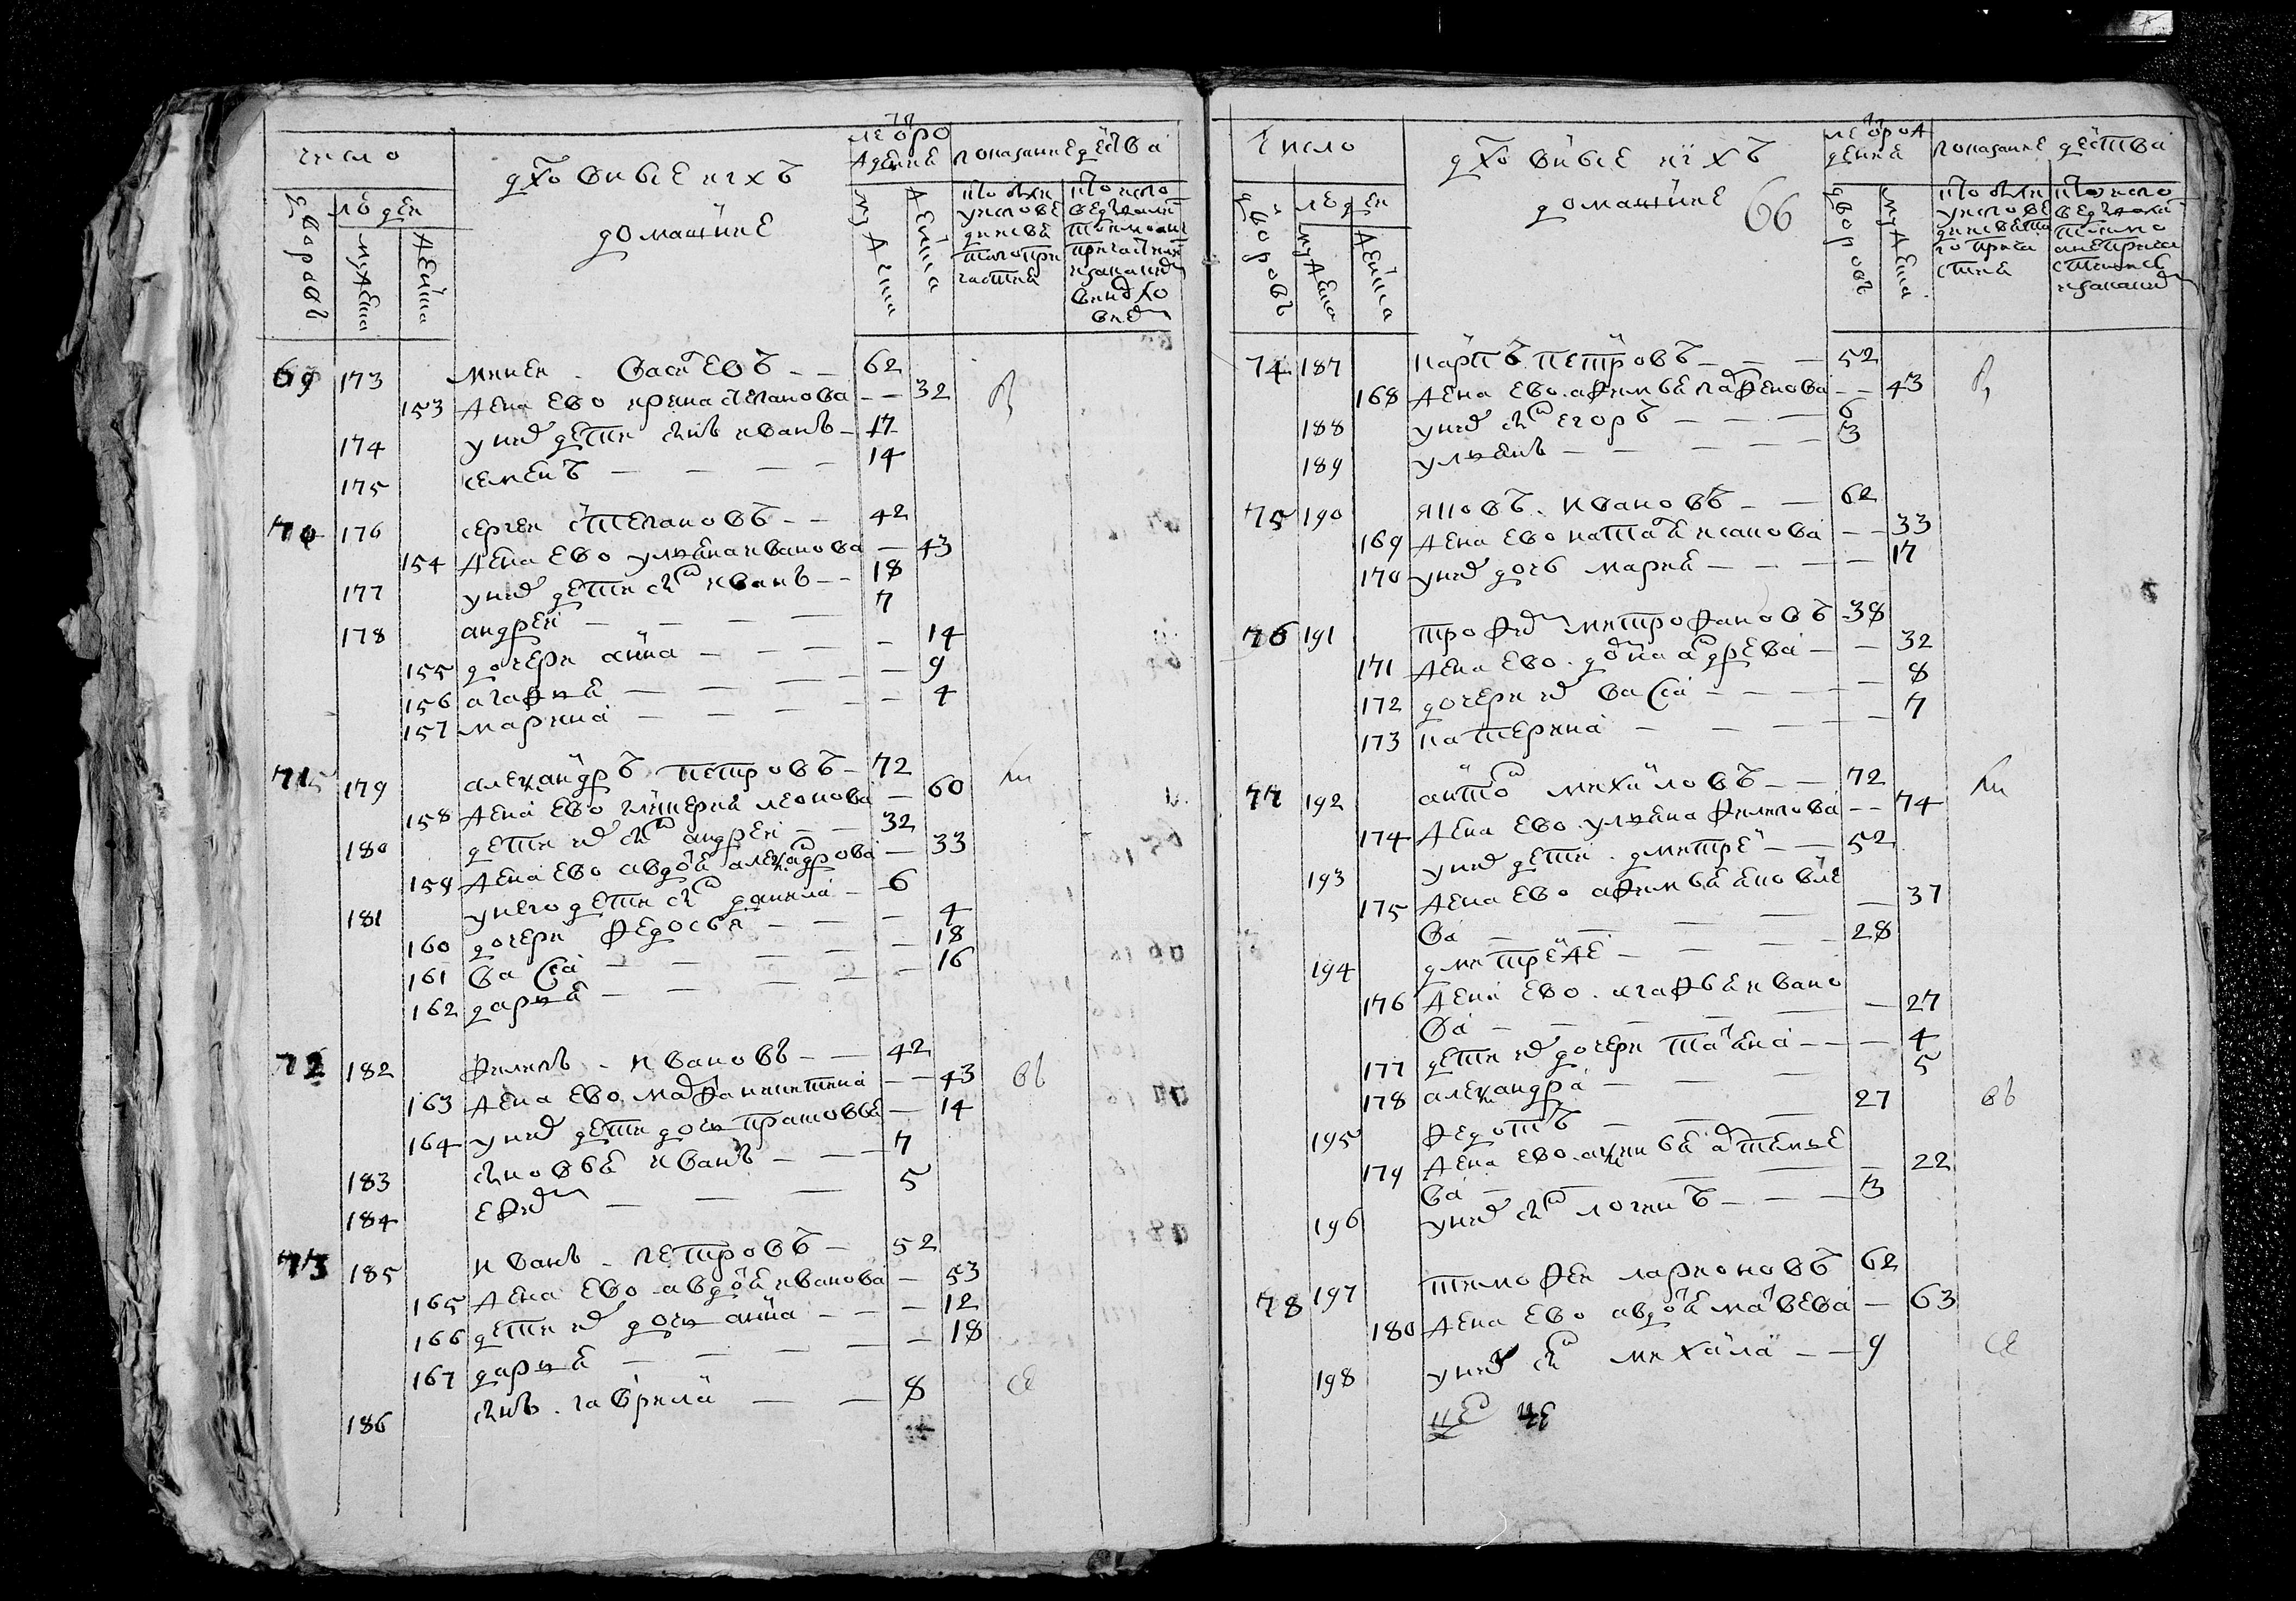 число
духовныье ихъ
домашние
лѣ рождение
показание дѣйства
дворовъ
людеи
мужеска
женска
мужеска
женска
69 173 михеи васильевъ 62
153 жена ево ирина степанова 32
174 у них дети сынъ иванъ 17
175 семенъ 14
70 176 сергеи степановъ 42
154 жена ево ульяна иванова 43
177 у них дети сынъ иванъ 18
178 андреи 7
155 дочери анна 14
156 агафья 9
157 марина 4
71 179 александръ петровъ 72
158 жена ево гликерия леонова 60
180 дети их сынъ андреи 32
159 жена ево авдотья александрова 33
181 у него дети сынъ данила 6
160 дочери федосья 4
161 васса 18
162 дарья 16
72 182 филипъ ивановъ 42
163 жена ево марфа никитина 43 вь
164 у них дети дочь прасковья 14
183 сыновья иванъ 7
184 ефим 5
73 185 иванъ петровъ 52
165 жена ево авдотья иванова 53
166 дети их дочь анна 12
167 дарья 18
186 сынъ гаврила 8
число
духовныье ихъ
домашние
66
лѣ рождение
показание дѣства
дворовъ
людеи
мужеска
женска
дворовъ
мужеска
74 187 карпъ петровъ 52
168 жена ево афимья парфенова 43
188 у них сынъ егоръ 6
189 ульянъ 3
75 190 яковъ ивановъ 62
169 жена ево наталья исакова 33
170 у них дочь мария 17
76 191 трофим митрофановъ 38
171 жена ево домна андрева 32
172 дочери их васса 8
173 катерина 7
77 192 антон михаиловъ 72
174 жена ево ульяна филипова 74
193 у них дети дмитреи 52
175 жена ево афимья яковле
ва 37
194 дмитреиже 28
176 жена ево агафья ивано
ва 27
177 дети их дочери татьяна 4
178 александра 5
195 федотъ 27 вь
179 жена ево аксинья артемье
ва 22
196 у них сынъ логинъ 3
78 197 тимофеи ларионовъ 62
180 жена ево авдотья матвева 63
198 у них сынъ михаила 9